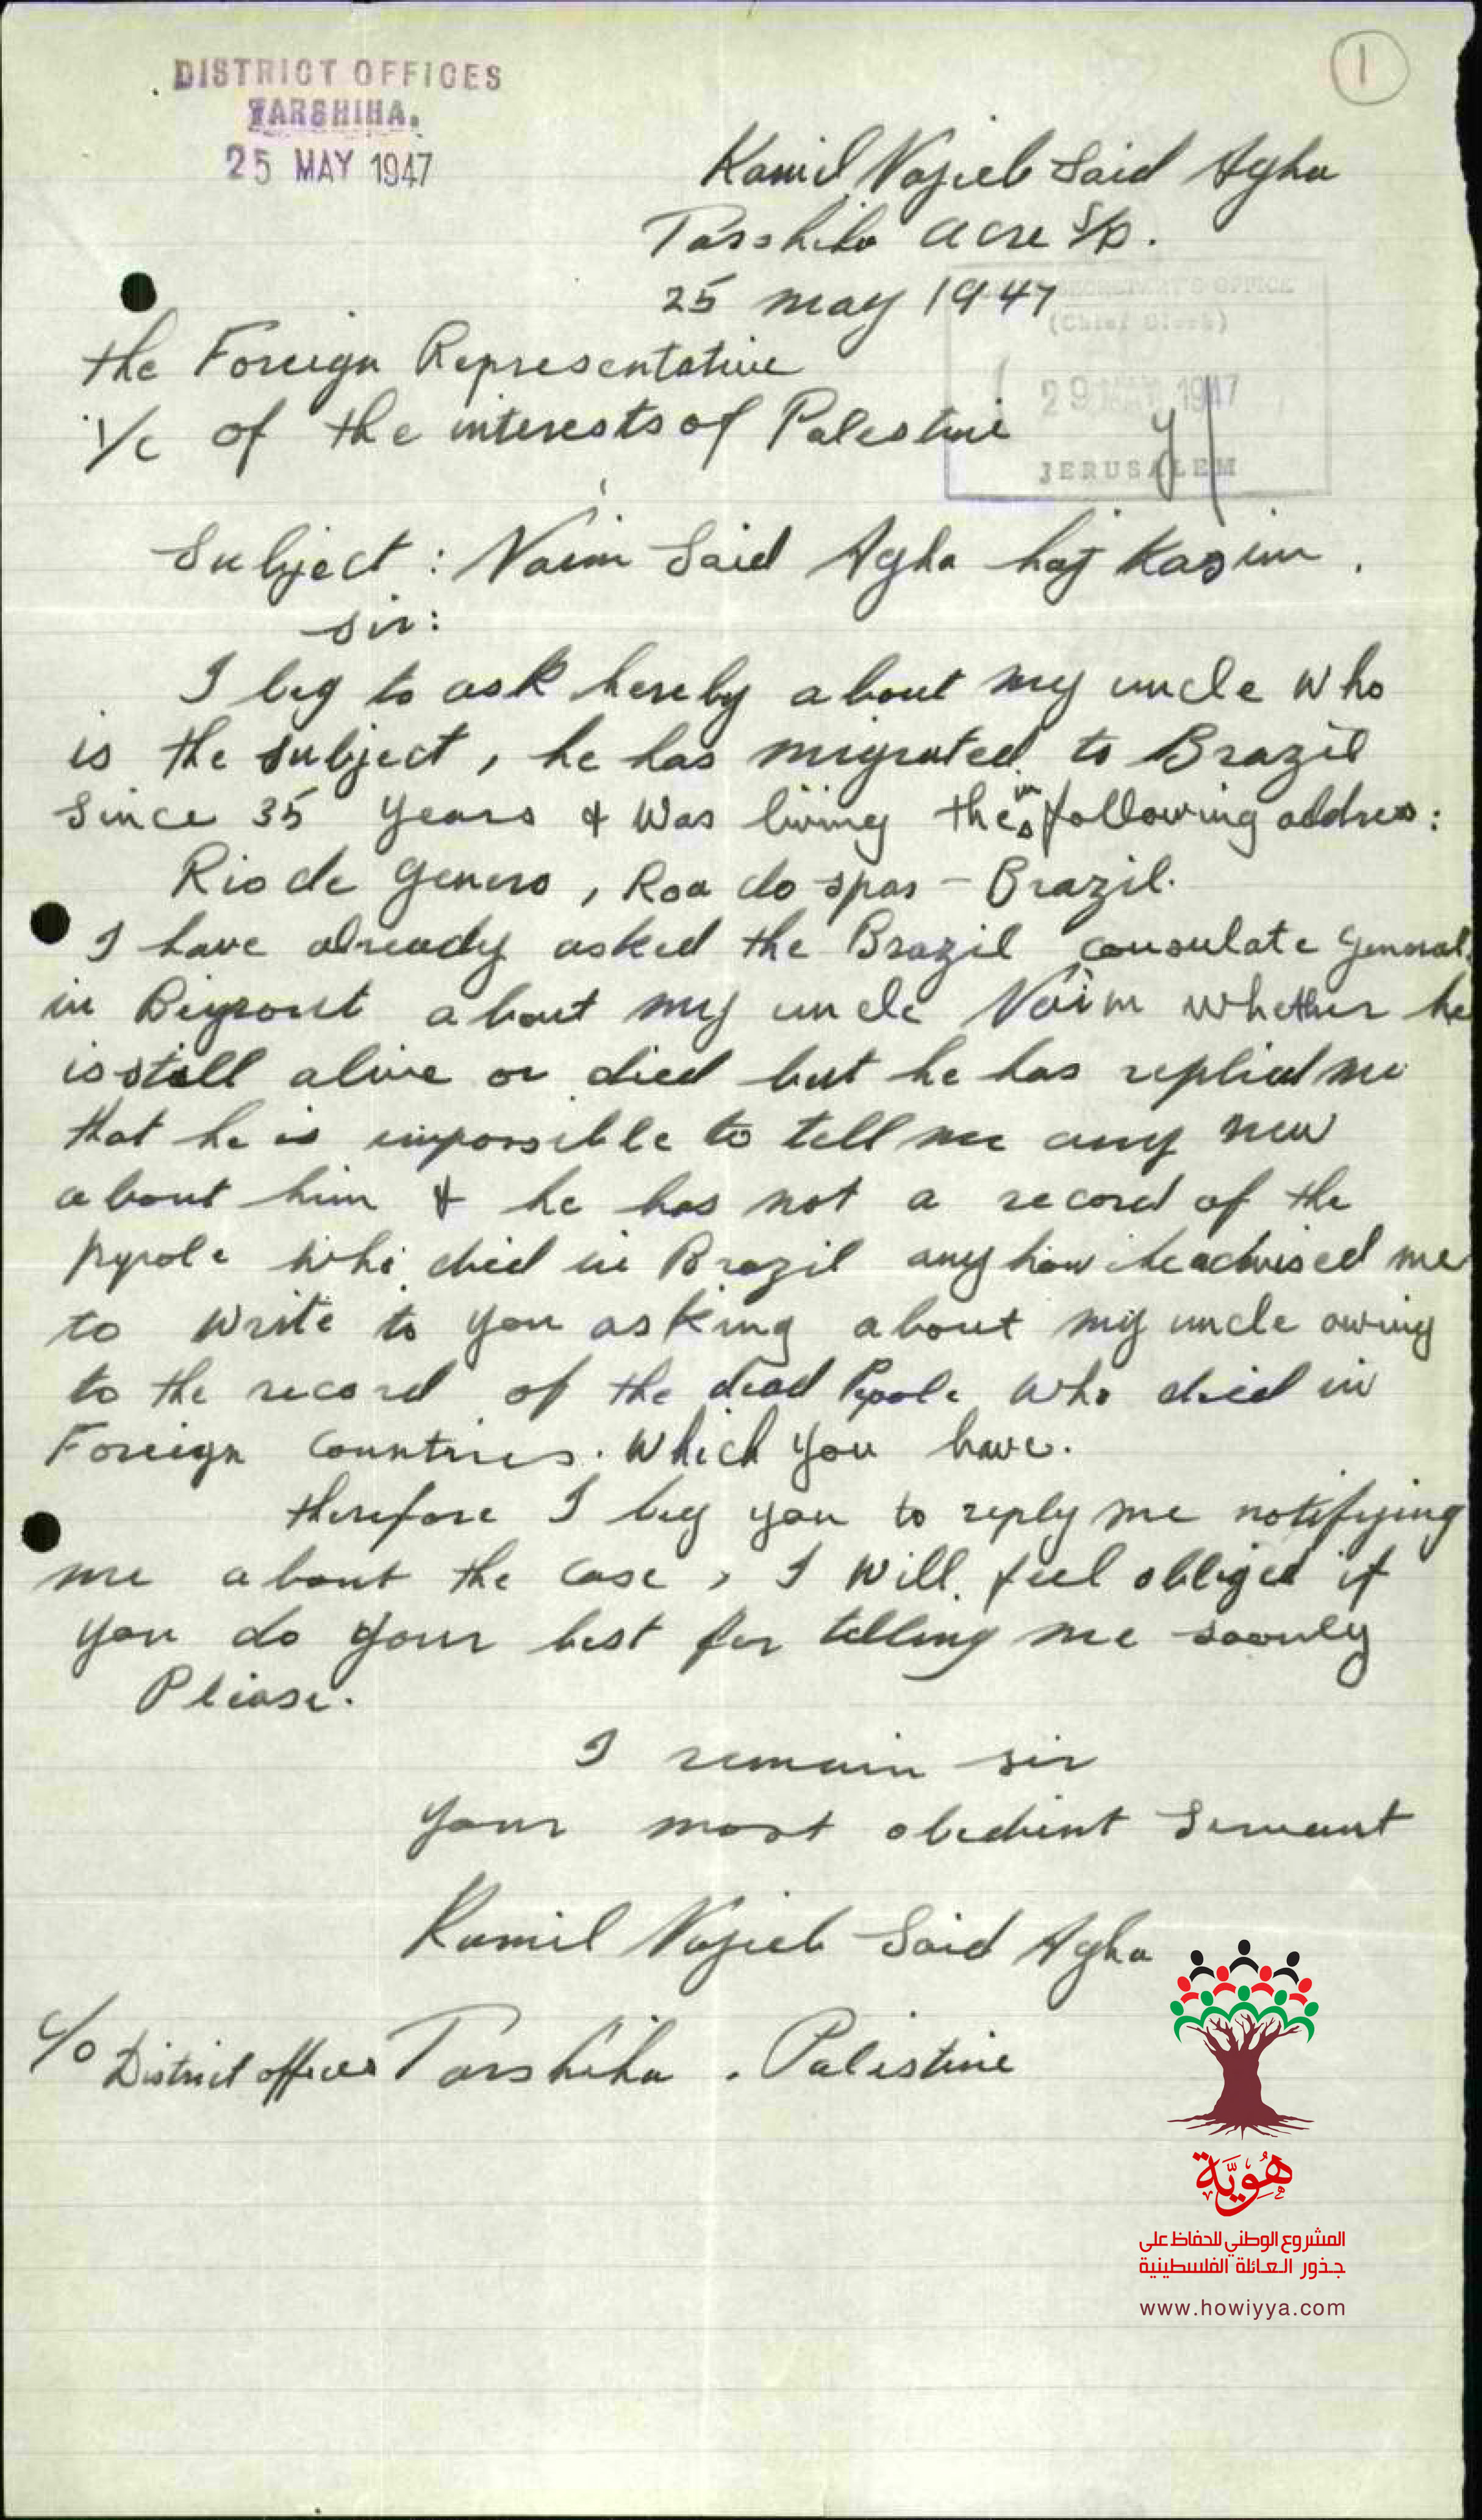 1
DISTRICT OFFICES
TARSHIHA.
25 MAY 1947
Kamil Najieb Said Agha
Tarshiha Acre S/D.
25 may 1947
SECRETARY'S OFFICE
(Chief Clerk)
29 MAY 1947
JERUSALEM
the Foreign Representative
i/c of the interests of Palestine
Subject : Naim Said Agha haj Kasim .
sir:
I beg to ask hereby about my uncle who
is the subject , he has migrated to Brazil
since 35 years & was living in the following address :
Rio de Genero , Roa do spas - Brazil.
I have already asked the Brazil consulate General
in Beyrout about my uncle Naim whether he
is still alive or died but he has replied me
that he is impossible to tell me any new
about him & he has not a record of the
pepole who died in Brazil any how he advised me
to write to you asking about my uncle owing
to the record of the dead Pepole who died in
Foreign countries. which you have.
therefore I beg you to reply me notifying
me about the case , I will feel obliged if
you do your best for telling me soonly
Please.
I remain sir
your most obedient servant
Kamil Najieb Said Agha
c/o District offices Tarshiha . Palestine
هُوِيَّة
المشروع الوطني للحفاظ على
جذور العائلة الفلسطينية
www.howiyya.com